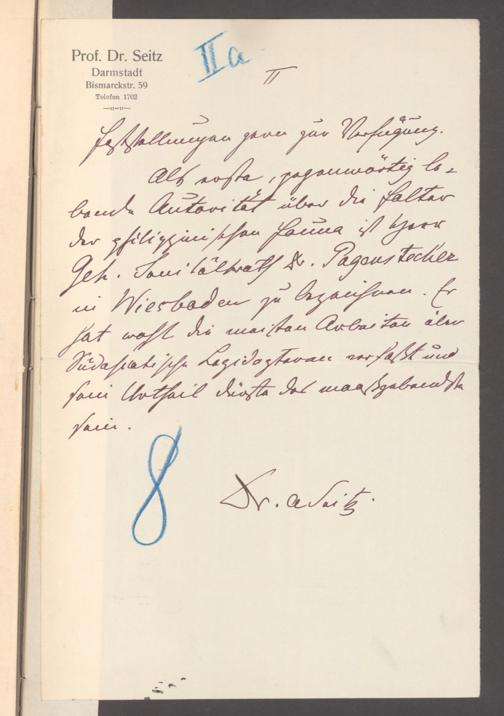 Prof. Dr. Seitz
Darmstadt
Bismarckstr. 59
Telefon 1702
IIa
II
Feststellungen gern zur Verfügung.
Als erste, gegenwärtig le-
bende Autorität über die Falter
der philippinischen Fauna ist Herr
Geh. Sanitätsrath Dr. Pagenstecher
in Wiesbaden zu bezeichnen. Er
hat wohl die meisten Arbeiten über
Südasiatische Lepidopteren verfaßt und
sein Urtheil dürfte das maasgebendste
sein.
8
Dr. A Seitz.